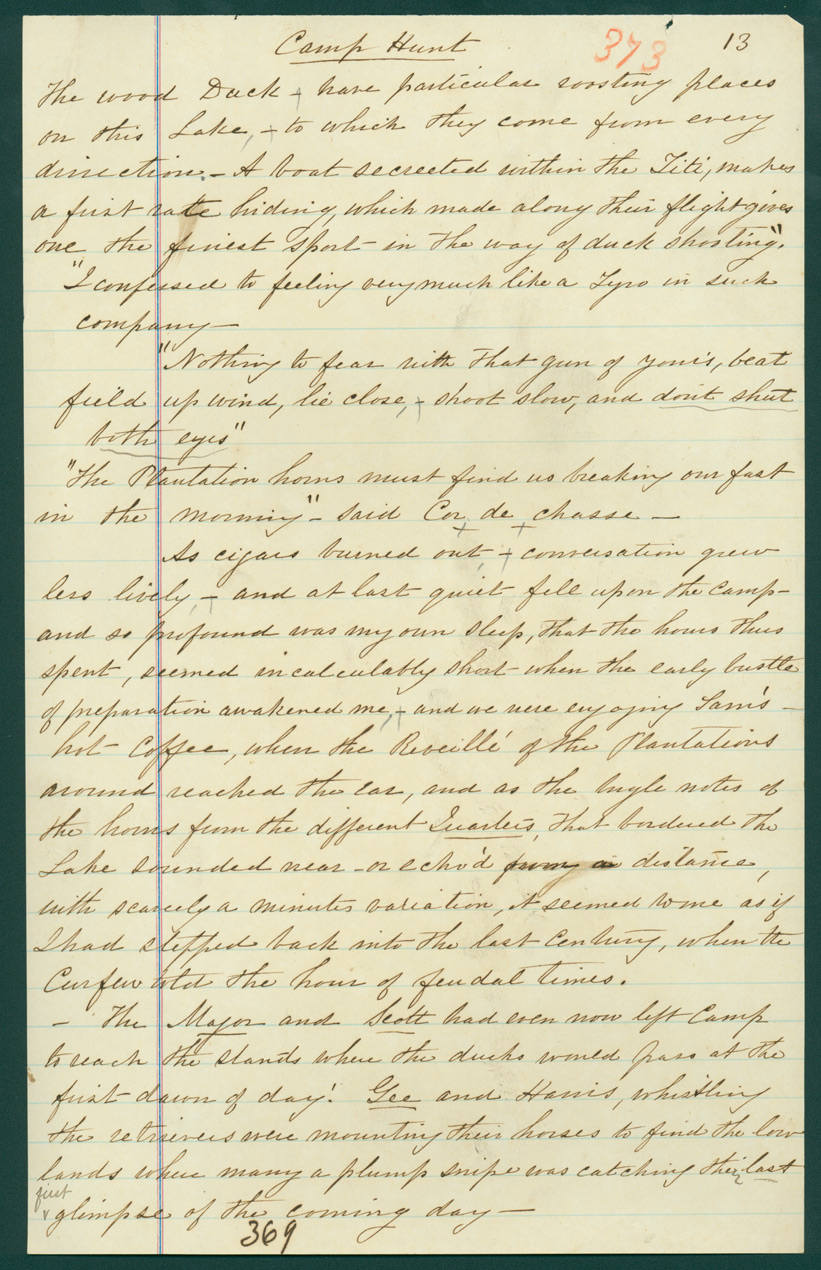 Camp Hunt 373 13
The wood Duck - have particular roosting places
on this Lake, - to which they come from every
direction. - A boat secreeted within the Titi, makes
a first rate hiding, which made along their flight gives
one the finest sport - in the way of duck shooting".
"I confessed to feeling very much like a Tyro in such
company -
"Nothing to fear with that gun of your's, beat
field up wind, lie close, - shoot slow, and don't shut
both eyes"
"The Plantation horns must find us breaking our fast
in the morning" - said Cor de chasse -
As cigars burned out, - conversation grew
less lively, - and at last quiet fell upon the camp -
and so profound was my own sleep, that the hours thus
spent, seemed incalculably short when the early bustle
of preparation awakened me, - and we were enjoying Sam's -
hot Coffee, when the Reveillé of the Plantations
around reached the ear, and as the bugle notes of
the horns from the different Quarters, that bordered the
Lake sounded near - or echo'd distance,
with scarcely a minutes variation, it seemed to me as if
I had stepped back into the last Century, when the
Curfew told the hour of feudal times.
- The Major and Scott had even now left Camp
to reach the stands where the ducks would pass at the
first dawn of day! Gee and Harris, whistling
the retrievers were mounting their horses to find the low
lands where many a plump snipe was catching their last
first
glimpse of the coming day -
369